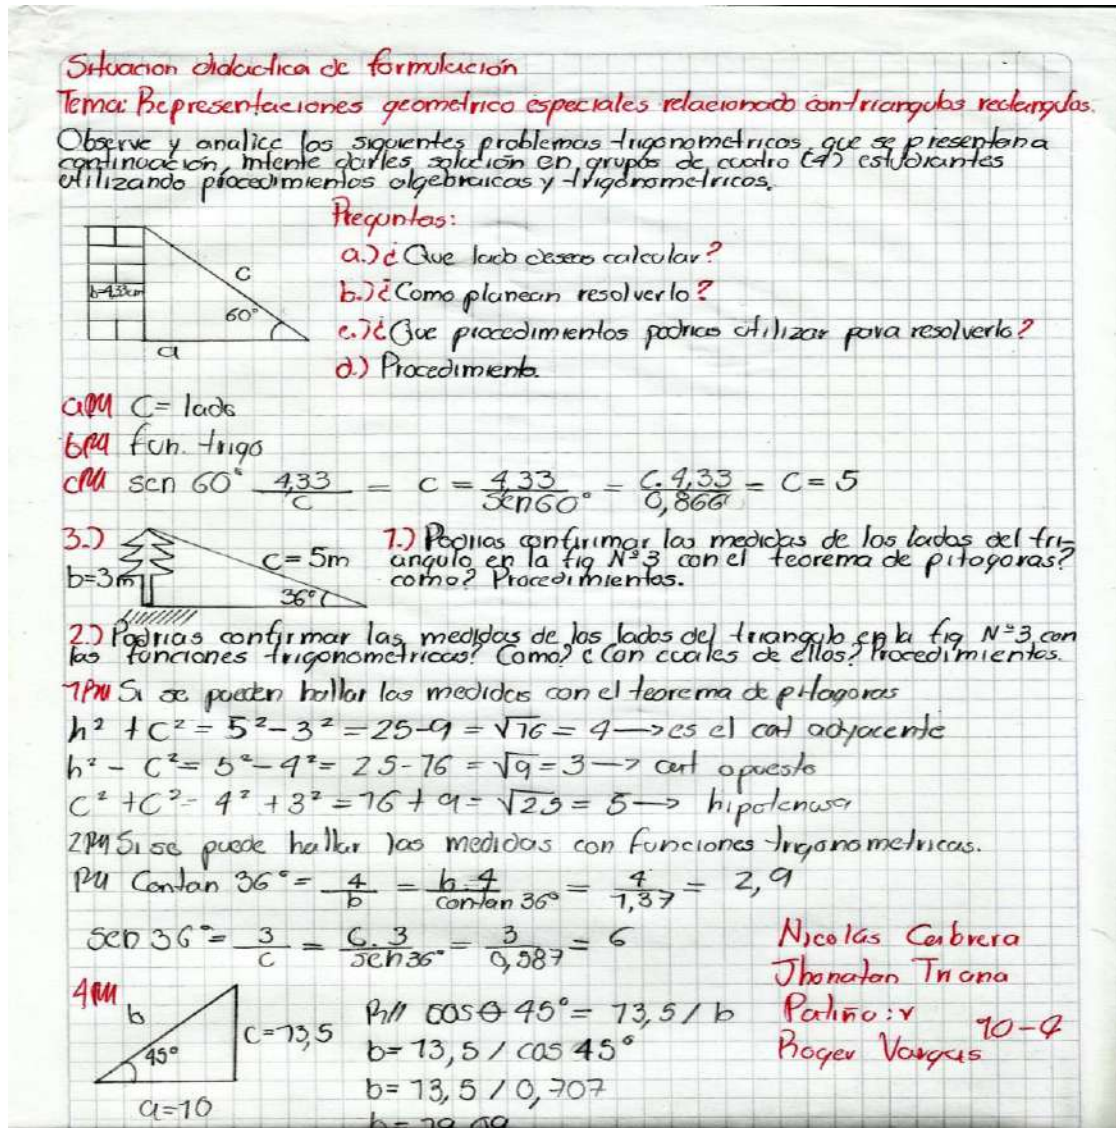 Situacion didactica de formulación
Tema: Representaciones geometrico especiales relacionado con triangulos rectangulos.
Observe y analice los siguientes problemas trigonometricos, que se presentan a
continuación, intente darles solución en grupos de cuatro (4) estudiantes
utilizando procedimientos algebraicas y trigonometricos.
Preguntas:
a.) ¿Que lado deseas calcular?
b.) ¿Como planean resolverlo?
c.) ¿Que procedimientos podrias utilizar para resolverlo?
d.) Procedimiento.
b=4,33cm
c
60°
a
a C= lado
b fun. trigo
c sen 60° 4,33/c = c = 4,33/sen60° = c. 4,33/0,866 = C= 5
3.)
b=3m
c= 5m
36°
1.) Podrias confirmar las medidas de los lados del tri-
angulo en la fig N°3 con el teorema de pitagoras?
como? Procedimientos.
2.) Podrias confirmar las medidas de los lados del triangulo en la fig N°3 con
las funciones trigonometricas? Como? ¿Con cuales de ellos? Procedimientos.
1 Si se pueden hallar las medidas con el teorema de pitagoras
h² + c² = 5² - 3² = 25-9 = √16 = 4 → es el cat adyacente
h² - c² = 5² - 4² = 25 - 16 = √9 = 3 → cat opuesto
c² + c² = 4² + 3² = 16 + 9 = √25 = 5 → hipotenusa
2 Si se puede hallar las medidas con funciones trigonometricas.
Contan 36° = 4/b = b.4/contan 36° = 4/1,37 = 2,9
sen 36° = 3/c = c. 3/sen36° = 3/0,587 = 6
4
b
45°
C=13,5
a=10
R// cosθ 45° = 13,5 / b
b= 13,5 / cos 45°
b= 13,5 / 0,707
Nicolas Cabrera
Jhonatan Triana
Patiño :v
Roger Vargas